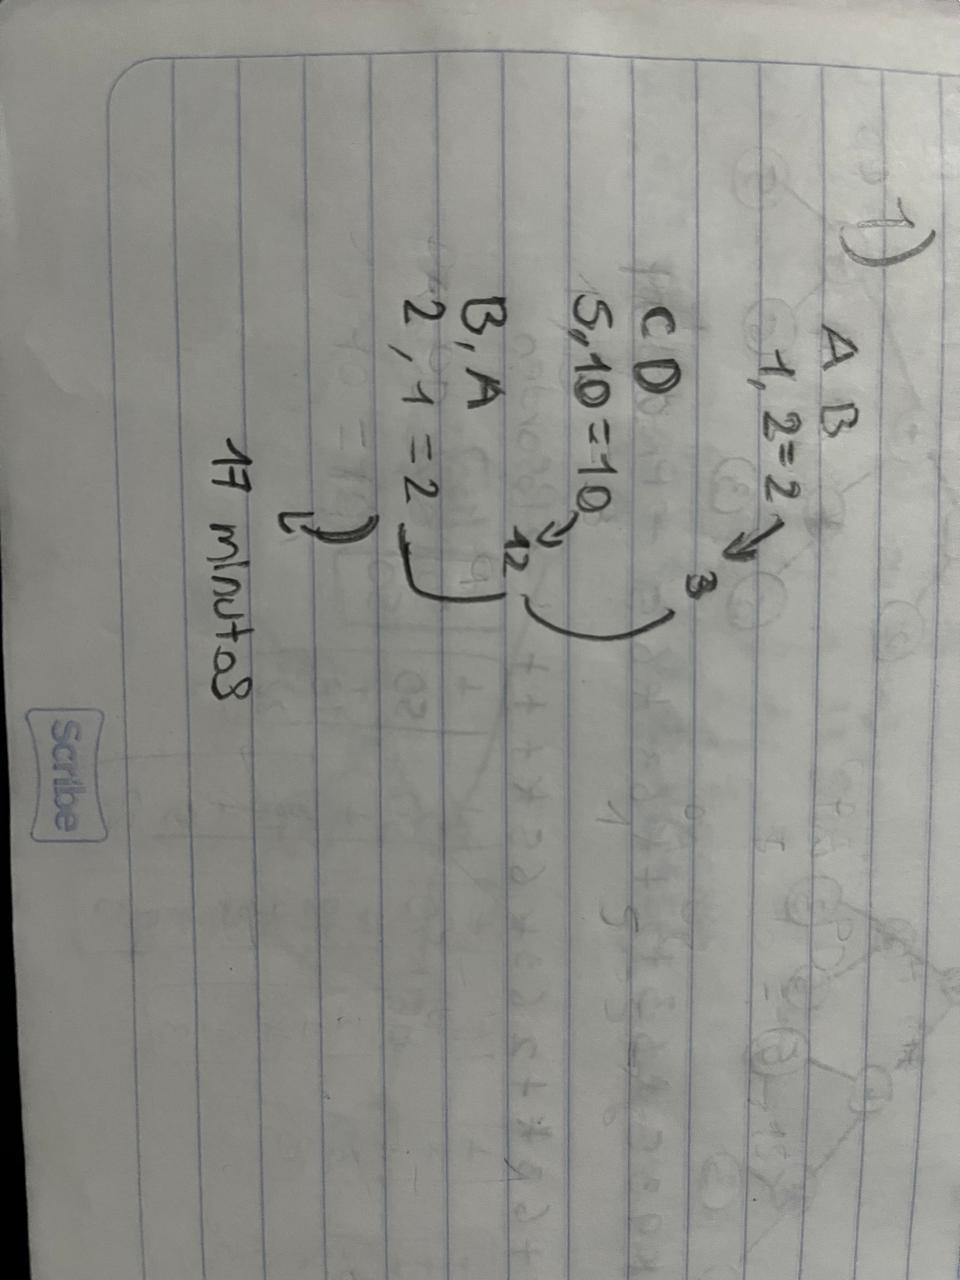 1)
A B
1, 2=2
3
C D
5,10=10
12
B, A
2, 1 =2
17 minutos
Scribe